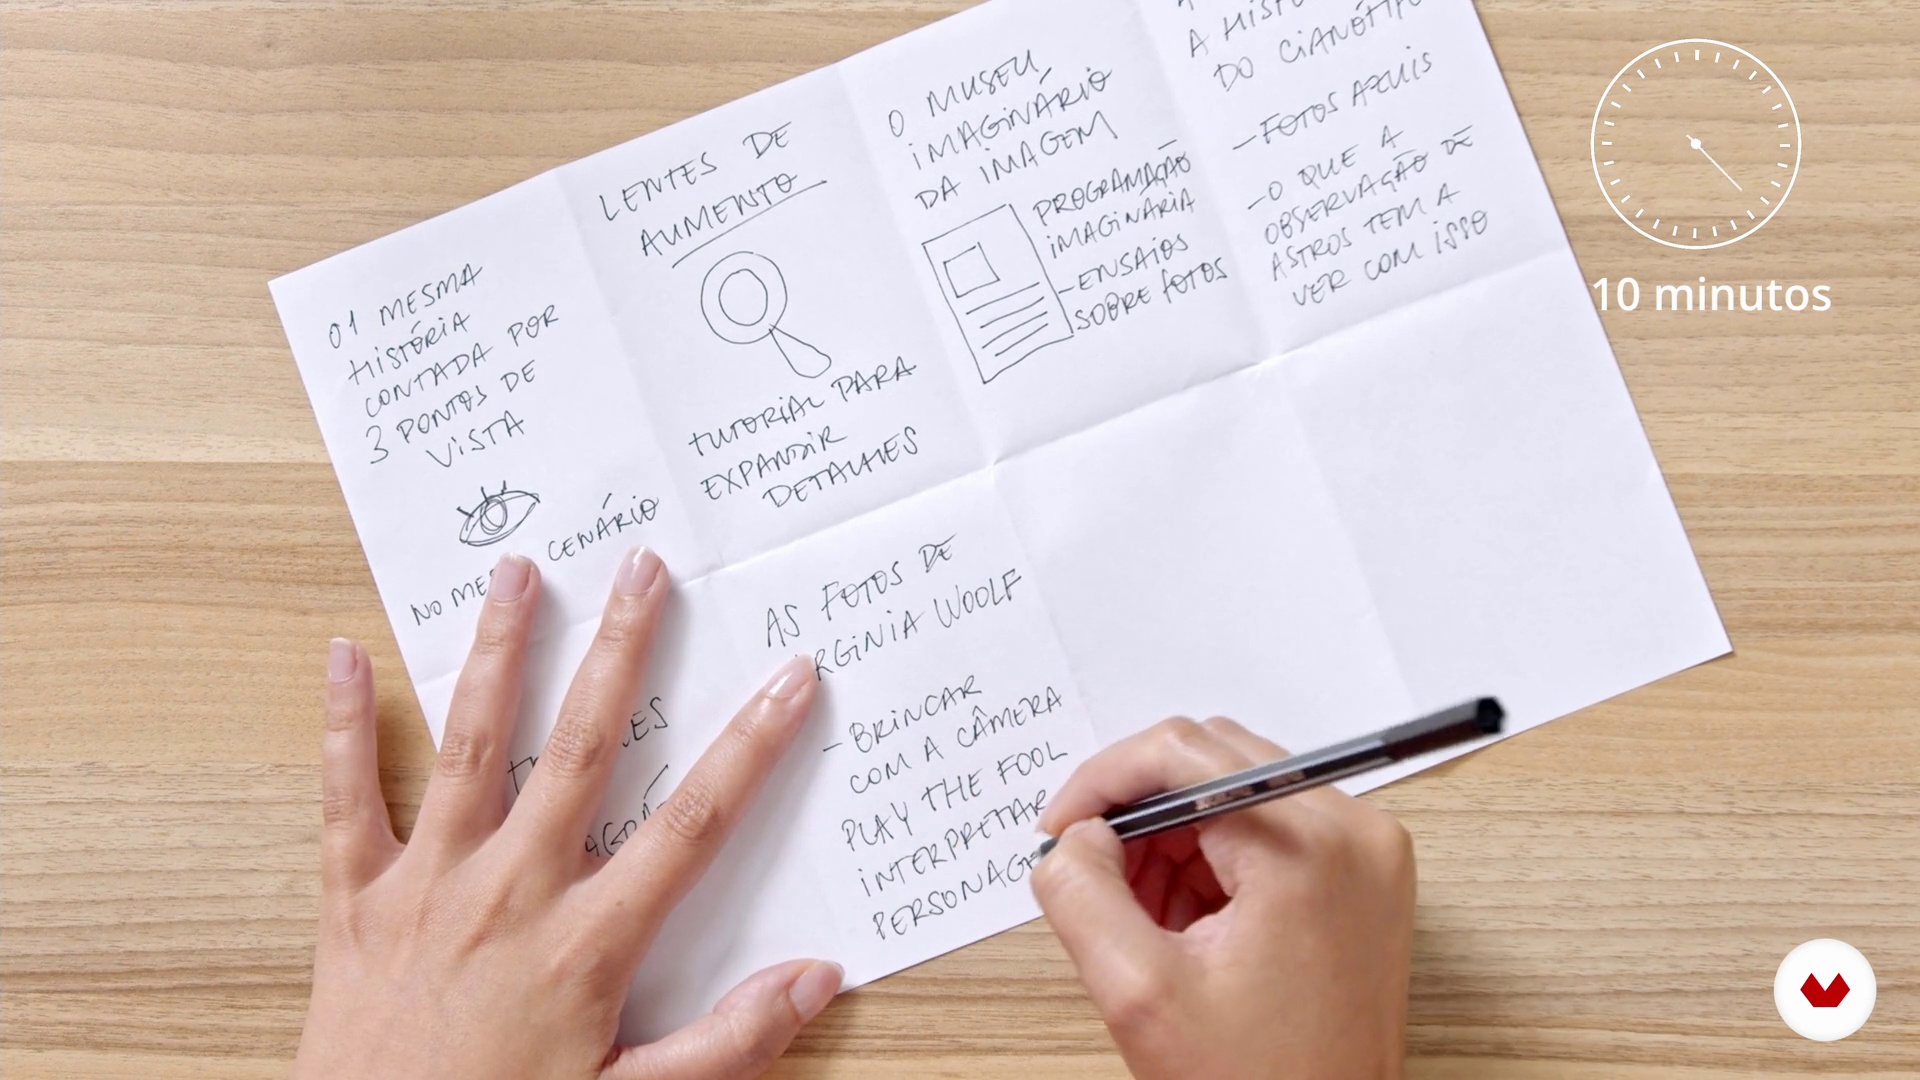 01 MESMA
HISTÓRIA
CONTADA POR
3 PONTOS DE
VISTA
NO
CENÁRIO
LENTES DE
AUMENTO
TUTORIAL PARA
EXPANDIR
DETALHES
O MUSEU
IMAGINÁRIO
DA IMAGEM
PROGRAMAÇÃO
IMAGINÁRIA
-ENSAIOS
SOBRE FOTOS
DO CIANÓTIPO
-FOTOS AZUIS
-O QUE A
OBSERVAÇÃO DE
ASTROS TEM A
VER COM ISSO
AS FOTOS DE
VIRGINIA WOOLF
-BRINCAR
COM A CÂMERA
PLAY THE FOOL
INTERPRETAR
10 minutos